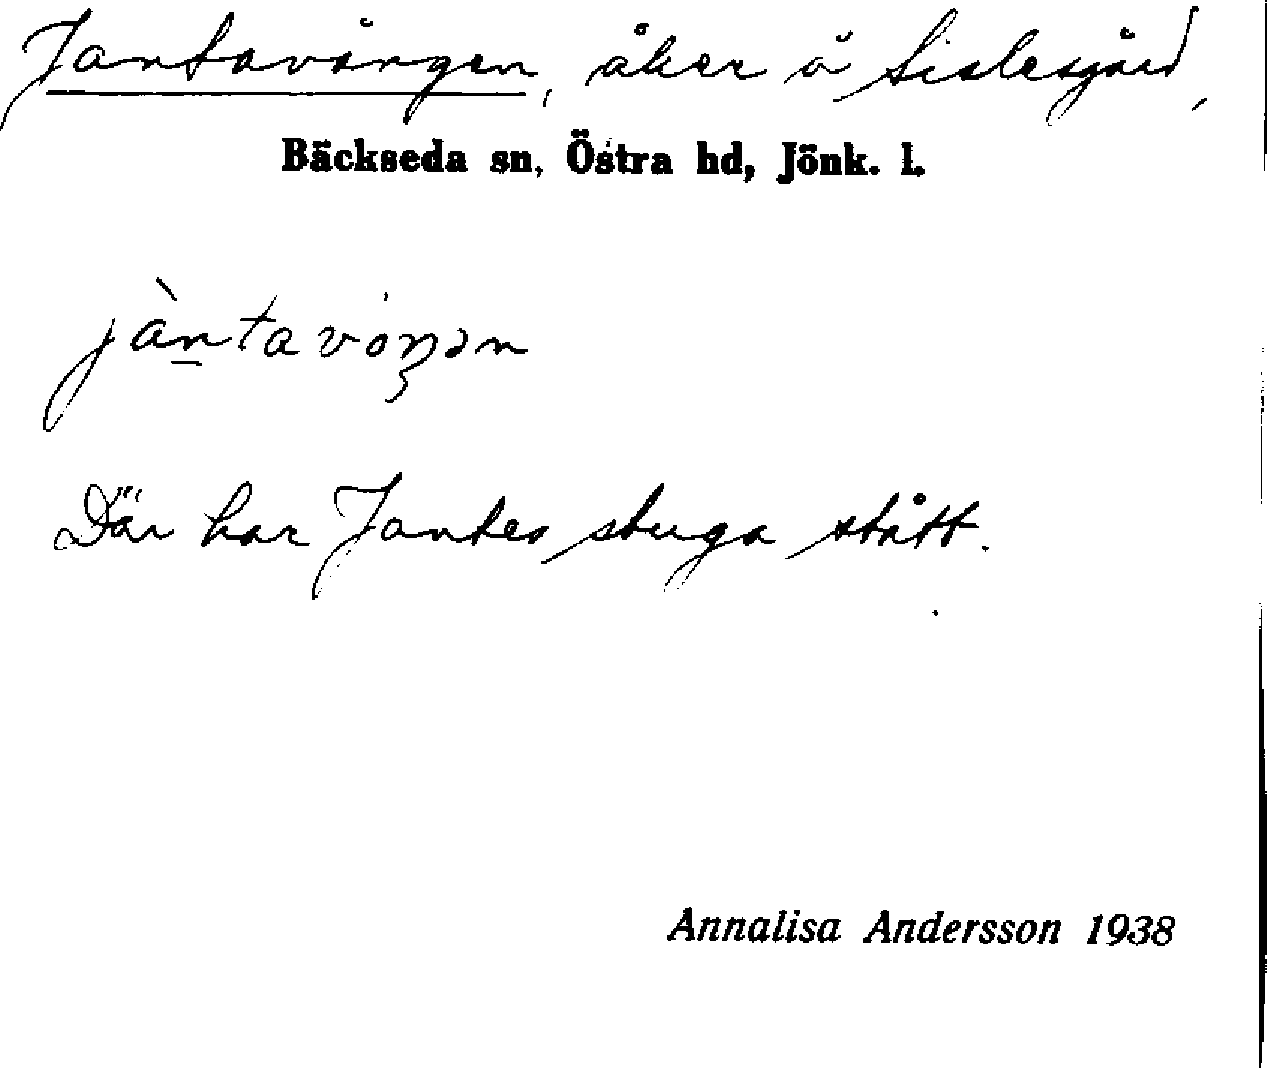 Jantavången, åker å Sislesgård,
Bäckseda sn, Östra hd, Jönk. l.
jàntavoŋən
Där har Jantes stuga stått.
Annalisa Andersson 1938